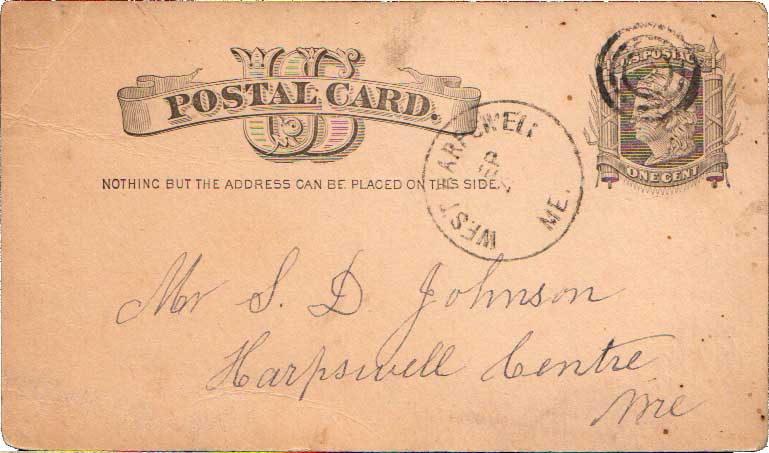 US
POSTAL CARD.
NOTHING BUT THE ADDRESS CAN BE PLACED ON THIS SIDE.
U.S. POSTAGE
ONE CENT
WEST HARPSWELL
SEP
ME.
Mr S. D. Johnson
Harpswell Centre
Me